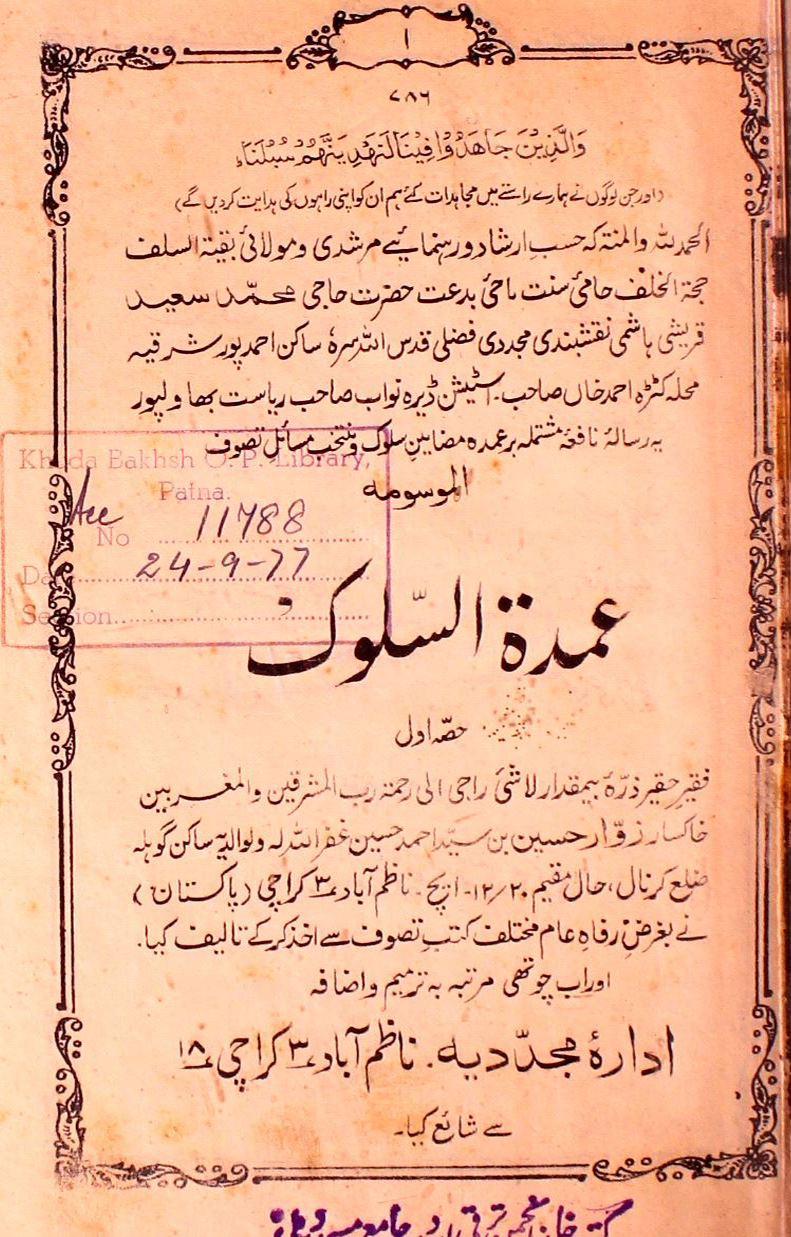 ١
٧٨٦
وَالَّذِيْنَ جَاهَدُوْا فِيْنَا لَنَهْدِيَنَّهُمْ سُبُلَنَاء
(اور جن لوگوں نے ہمارے راستے میں مجاہدات کئے ہم ان کو اپنی راہوں کی ہدایت کردیں گے)
الحمد للہ والمنۃ کہ حسب ارشاد ورہنمائیے مرشدی و مولائی بقیۃ السلف
حجۃ الخلف حامیٔ سنت ماحیٔ بدعت حضرت حاجی محمّد سعید
قریشی ہاشمی نقشبندی مجددی فضلی قدس اللہ سرہٗ ساکن احمد پور شرقیہ
محلہ کٹڑہ احمد خاں صاحب۔ اسٹیشن ڈیرہ نواب صاحب ریاست بھاولپور
یہ رسالۂ نافعہ مشتملہ بر عمدہ مضامینِ سلوک و منتخب مسائل تصوف
الموسومہ
Khuda Bakhsh O. P. Library,
Patna.
Acc No 11788
Date 24-9-77
Section
عمدۃ السّلوک
حصّہ اول
فقیر حقیر ذرّۂ بیمقدار لاشئ راجی الی رحمۃ رب المشرقین والمغربین
خاکسار زوّار حسین بن سیّد احمد حسین غفر اللہ لہ ولوالدیہ ساکن گوہلہ
ضلع کرنال، حال مقیم ۱۲/۲۰۔ ایچ۔ ناظم آباد ۳ کراچی (پاکستان)
نے بغرضِ رفاہِ عام مختلف کتبِ تصوف سے اخذ کرکے تالیف کیا۔
اور اب چوتھی مرتبہ بہ ترمیم و اضافہ
ادارۂ مجدّدیہ۔ ناظم آباد ۳ کراچی ۱۸
سے شائع کیا۔